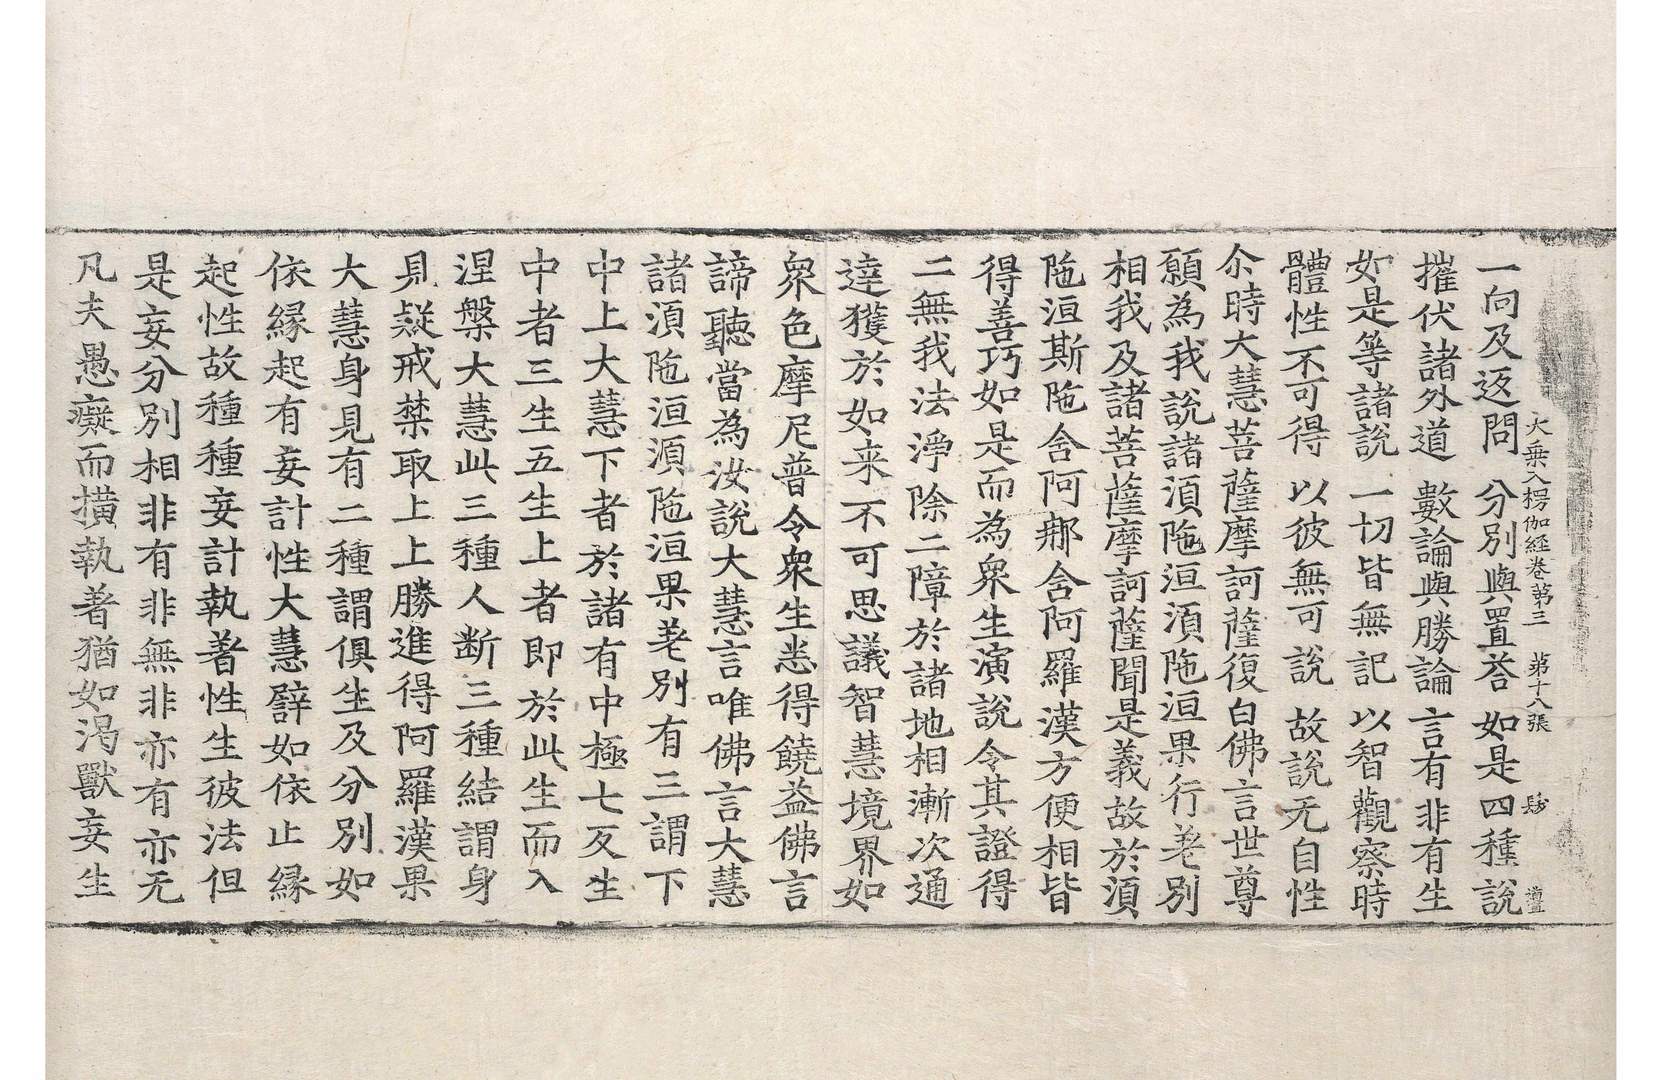 大乗入楞伽経巻第三 第十八張 髮
一向及返問 分別與置荅 如是四種說
摧伏諸外道 數論與勝論 言有非有生
如是等諸說 一切皆無記 以智觀察時
體性不可得 以彼無可說 故說无自性
尒時大慧菩薩摩訶薩復白佛言世尊
願為我說諸湏陁洹湏陁洹果行差別
相我及諸菩薩摩訶薩聞是義故於湏
陁洹斯陁含阿那含阿羅漢方便相皆
得善巧如是而為衆生演說令其證得
二無我法淨除二障於諸地相漸次通
達獲於如来不可思議智慧境界如
衆色摩尼普令衆生悉得饒益佛言
諦聽當為汝說大慧言唯佛言大慧
諸湏陁洹湏陁洹果差別有三謂下
中上大慧下者於諸有中極七反生
中者三生五生上者即於此生而入
涅槃大慧此三種人断三種結謂身
見疑戒禁取上上勝進得阿羅漢果
大慧身見有二種謂俱生及分別如
依縁起有妄計性大慧譬如依止縁
起性故種種妄計執著性生彼法但
是妄分別相非有非無非亦有亦无
凡夫愚癡而橫執著猶如渴獸妄生